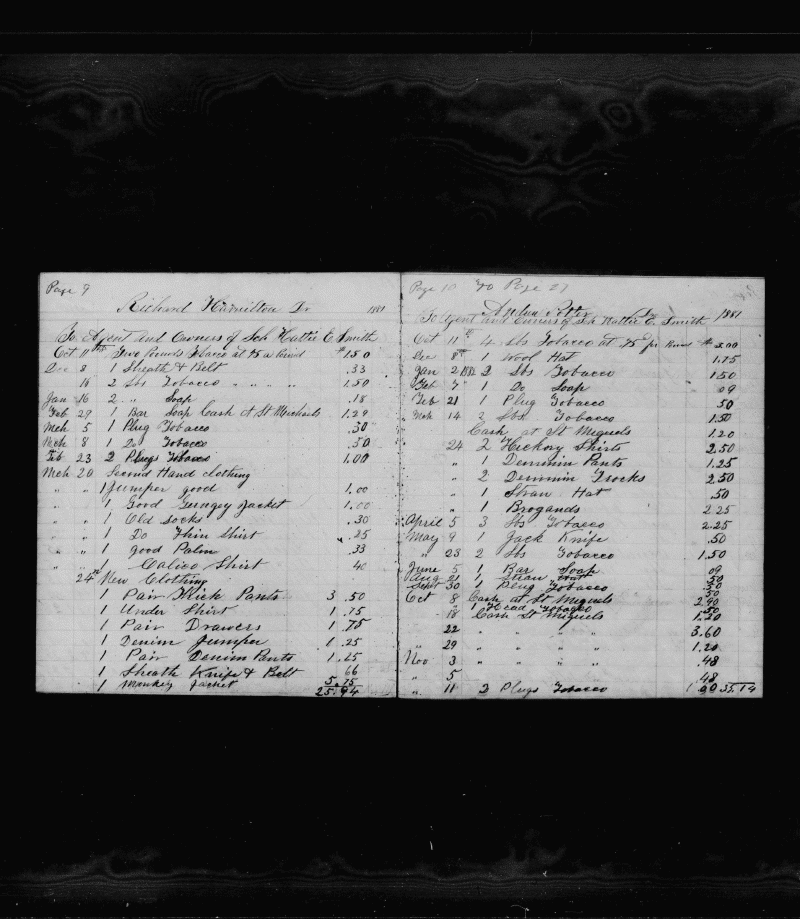 Page 9
Richard Hamilton Dr 1881
To Agent and Owners of Sch Hattie E Smith
Oct 11th Two Pounds Tobacco at 75 a Pound $1.50
Dec 8 1 Sheath & Belt .33
18 2 lbs Tobacco " " " 1.50
Jan 16 2 " Soap .18
Feb 29 1 Bar Soap Cash at St Michaels 1.29
Mch 5 1 Plug Tobacco .50
Mch 8 1 Do Tobacco .50
Feb 23 2 Plugs Tobacco 1.00
Mch 20 Second Hand clothing
" " 1 Jumper good 1.00
" " 1 Good Jacket 1.00
" " 1 Old socks .30
" " 1 Do Thin Shirt .25
" " 1 good Palm .33
" " Calico Shirt 40
24th New Clothing
1 Pair Thick Pants 3.50
1 Under Shirt 1.75
1 Pair Drawers 1.75
1 Denim Jumper 1.25
1 Pair Denim Pants 1.25
1 Sheath Knife & Belt 66
1 Monkey Jacket 5.75
25.94
Page 10 to Page 27
Potter Dr 1881
To Agent and Owners of Sch Hattie E. Smith
Oct 11th 4 lbs Tobacco at 75 per Pound $3.00
Dec 8th 1 Wool Hat 1.75
Jan 2 1882 2 lbs Tobacco 1.50
Feb 7 1 Do Soap 09
Feb 21 1 Plug Tobacco 50
Mch 14 2 lbs Tobacco 1.50
Cash at St Miguels 1.20
24 2 Hickory Shirts 2.50
" 1 Dennim Pants 1.25
" 2 Dennim Frocks 2.50
" 1 Straw Hat .50
" 1 Brogands 2.25
April 5 3 lbs Tobacco 2.25
May 9 1 Jack Knife .50
" 23 2 lbs Tobacco 1.50
June 5 1 Bar Soap 09
Aug 21 1 Straw Hat 50
Sept 30 1 Plug Tobacco 50
Oct 8 Cash at St Miguels 2.90
" 1 Head Tobacco 50
18 Cash St Miguels 1.20
22 " " " " 3.60
" 29 " " " " 1.20
Nov 3 " " " " .48
" 5 .48
" 11 2 Plugs Tobacco 1.00 35.14